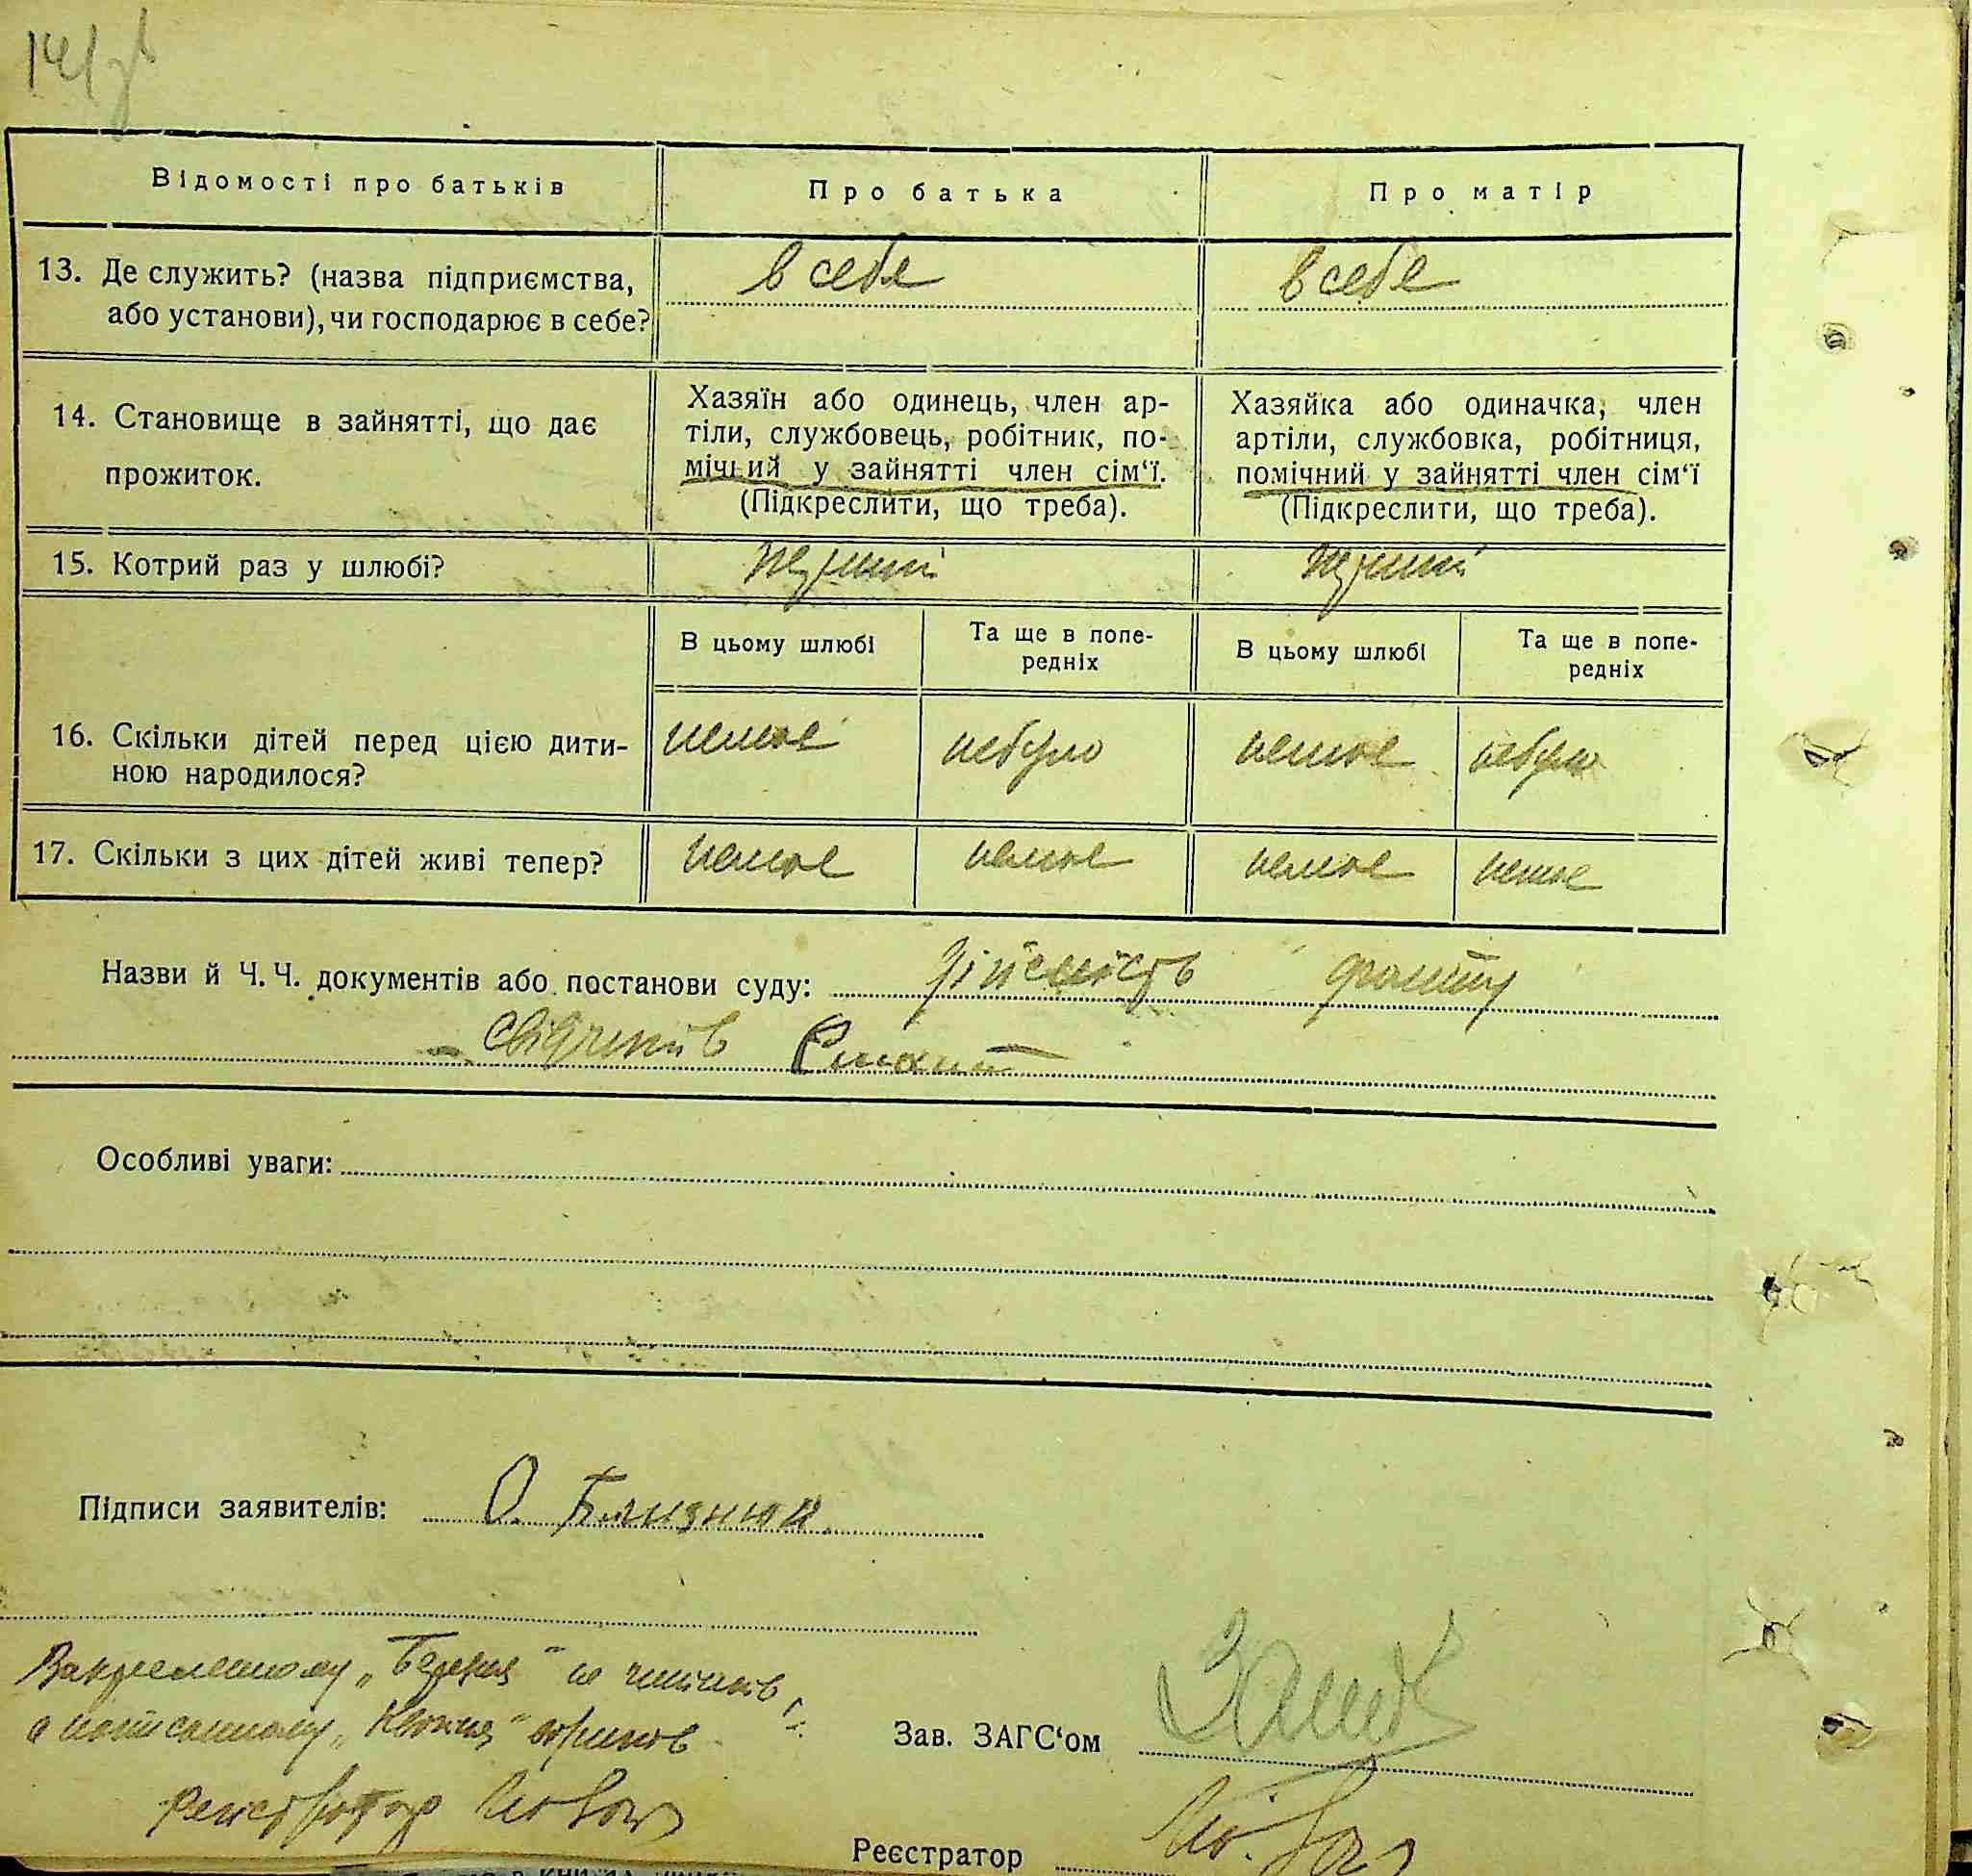 Відомості про батьків
Про батька
Про матір
13. Де служить? (назва підприємства,
або установи), чи господарює в себе?
в себе
в себе
14. Становище в зайнятті, що дає
прожиток.
Хазяїн або одинець, член ар-
тіли, службовець, робітник, по-
мічний у зайнятті член сім‘ї.
(Підкреслити, що треба).
Хазяйка або одиначка, член
артіли, службовка, робітниця,
помічний у зайнятті член сім‘ї
(Підкреслити, що треба).
15. Котрий раз у шлюбі?
перший
перший
В цьому шлюбі
Та ще в попе-
редніх
В цьому шлюбі
Та ще в попе-
редніх
16. Скільки дітей перед цією дити-
ною народилося?
немає
небуло
немає
небуло
17. Скільки з цих дітей живі тепер?
немає
немає
немає
немає
Назви й Ч. Ч. документів або постанови суду:
Особливі уваги:
Підписи заявителів: О. Близнюк
Зав. ЗАГС‘ом
реєстратор
Реєстратор